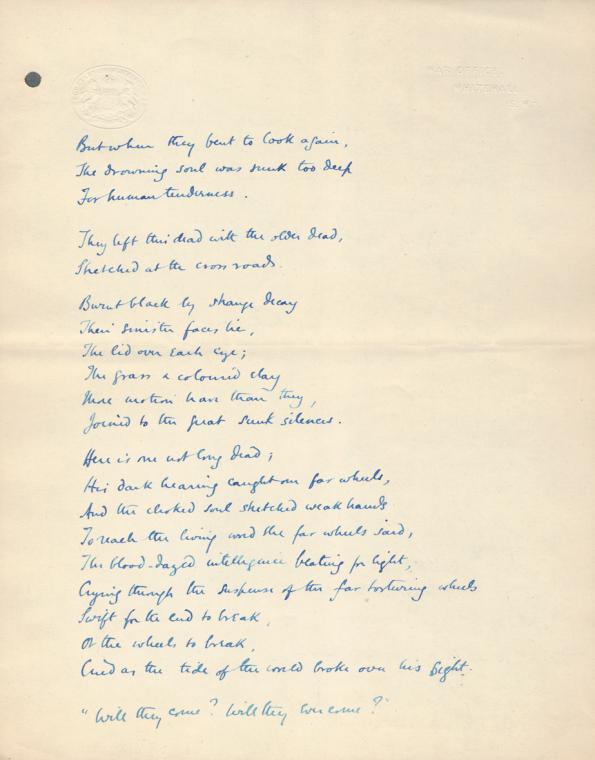 WAR OFFICE,
WHITEHALL,
S.W.1.
But when they bent to look again,
The drowning soul was sunk too deep
For human tenderness.
They left this dead with the older dead,
Stretched at the cross roads.
Burnt black by strange decay
Their sinister faces lie,
The lid over each eye;
The grass & coloured clay
More motion have than they,
Joined to the great sunk silences.
Here is one not long dead;
His dark hearing caught our far wheels,
And the choked soul stretched weak hands
To reach the living word the far wheels said,
The blood-dazed intelligence beating for light,
Crying through the suspense of the far torturing wheels
Swift for the end to break,
Or the wheels to break,
Cried as the tide of the world broke over his sight.
"Will they come? Will they ever come?"